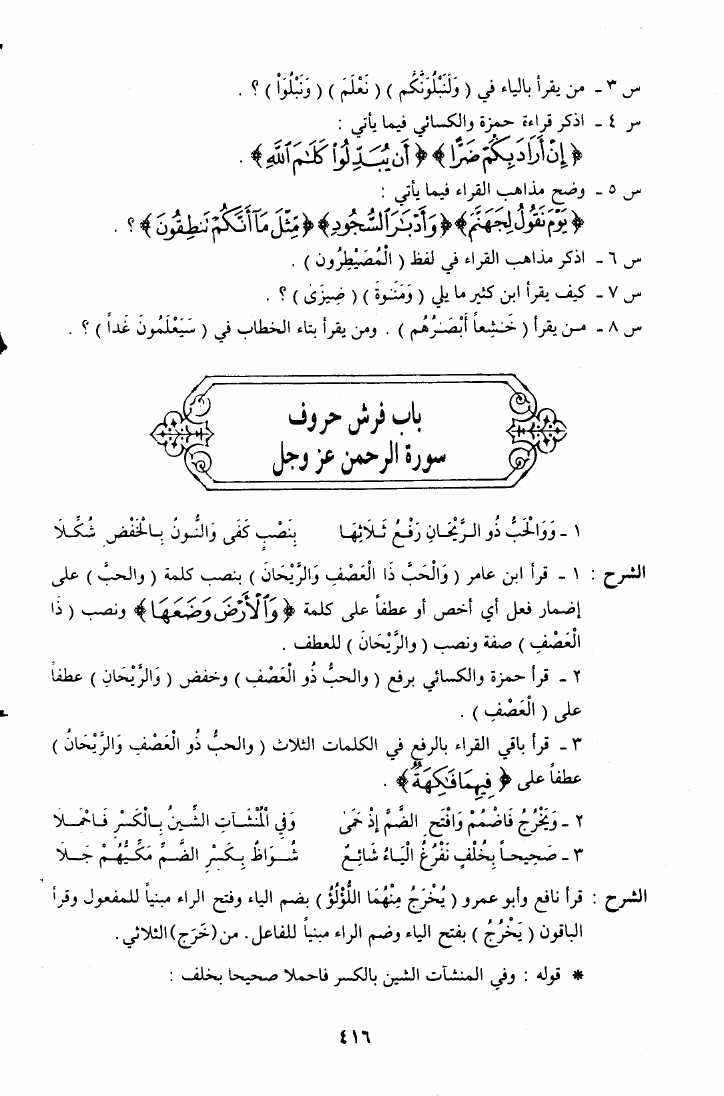 س ٣ - من يقرأ بالياء في ( وَلَنَبْلُوَنَّكُم ) ( نَعْلَمَ ) ( وَنَبْلُوَاْ ) ؟ .
س ٤ - اذكر قراءة حمزة والكسائي فيما يأتي :
﴿ إِنْ أَرَادَ بِكُمْ ضَرًّا ﴾ ﴿ أَن يُبَدِّلُواْ كَلَٰمَ ٱللَّهِ ﴾ .
س ٥ - وضح مذاهب القراء فيما يأتي :
﴿ يَوْمَ نَقُولُ لِجَهَنَّمَ ﴾ ﴿ وَأَدْبَٰرَ ٱلسُّجُودِ ﴾ ﴿ مِّثْلَ مَآ أَنَّكُمْ تَنطِقُونَ ﴾ ؟ .
س ٦ - اذكر مذاهب القراء في لفظ ( الْمُصَيْطِرُون ) .
س ٧ - كيف يقرأ ابن كثير ما يلي ( وَمَنَوٰةَ ) ( ضِيزَىٰ ) ؟ .
س ٨ - مـن يقرأ ( خَـٰشِعاً أَبْصَـٰرُهُم ) . ومن يقرأ بتاء الخطاب في ( سَيَعْلَمُونَ غَداً ) ؟ .
باب فرش حروف
سورة الرحمن عز وجل
١ - وَوَالْحَبُّ ذُو الـرَّيْحَـانِ رَفْـعُ ثَـلَاثِهَـا بِنَصْبٍ كَفَى وَالنُّـونُ بِـالْخَفْضِ شُكِّـلَا
الشرح : ١ - قرأ ابن عامر ( وَالْحَبَّ ذَا الْعَصْفِ وَالرَّيْحَانَ ) بنصب كلمة ( والحبَّ ) على
إضمار فعل أي أخص أو عطفاً على كلمة ﴿ وَٱلْأَرْضَ وَضَعَهَا ﴾ ونصب ( ذَا
الْعَصْفِ ) صفة ونصب ( والرَّيْحَانَ ) للعطف .
٢ - قرأ حمزة والكسائي برفع ( والحبُّ ذُو الْعَصْفِ ) وخفض ( وَالرَّيْحَانِ ) عطفاً
على ( الْعَصْفِ ) .
٣ - قرأ باقي القراء بالرفع في الكلمات الثلاث ( والحبُّ ذُو الْعَصْفِ وَالرَّيْحَانُ )
عطفاً على ﴿ فِيهَا فَٰكِهَةٌ ﴾ .
٢ - وَيَخْرُجُ فَاضْمُمْ وَافْتَحِ الضَّمَّ إِذْ حَمَى وَفِي الْمُنْشَـآتِ الشِّينُ بِـالْكَسْرِ فَـاحْمِـلَا
٣ - صَحِيحـاً بِخُلْفٍ نَفْرُغُ الْيَـاءُ شَائِـعٌ شُـوَاظٌ بِكَـسْرِ الضَّـمِّ مَكِّـيُّهُـمْ جَـلَا
الشرح : قرأ نافع وأبو عمرو ( يُخْرَجُ مِنْهُمَا اللُّؤْلُؤُ ) بضم الياء وفتح الراء مبنياً للمفعول وقرأ
الباقون ( يَخْرُجُ ) بفتح الياء وضم الراء مبنياً للفاعل . من ( خَرَج ) الثلاثي .
* قوله : وفي المنشآت الشين بالكسر فاحملا صحيحا بخلف :
٤١٦